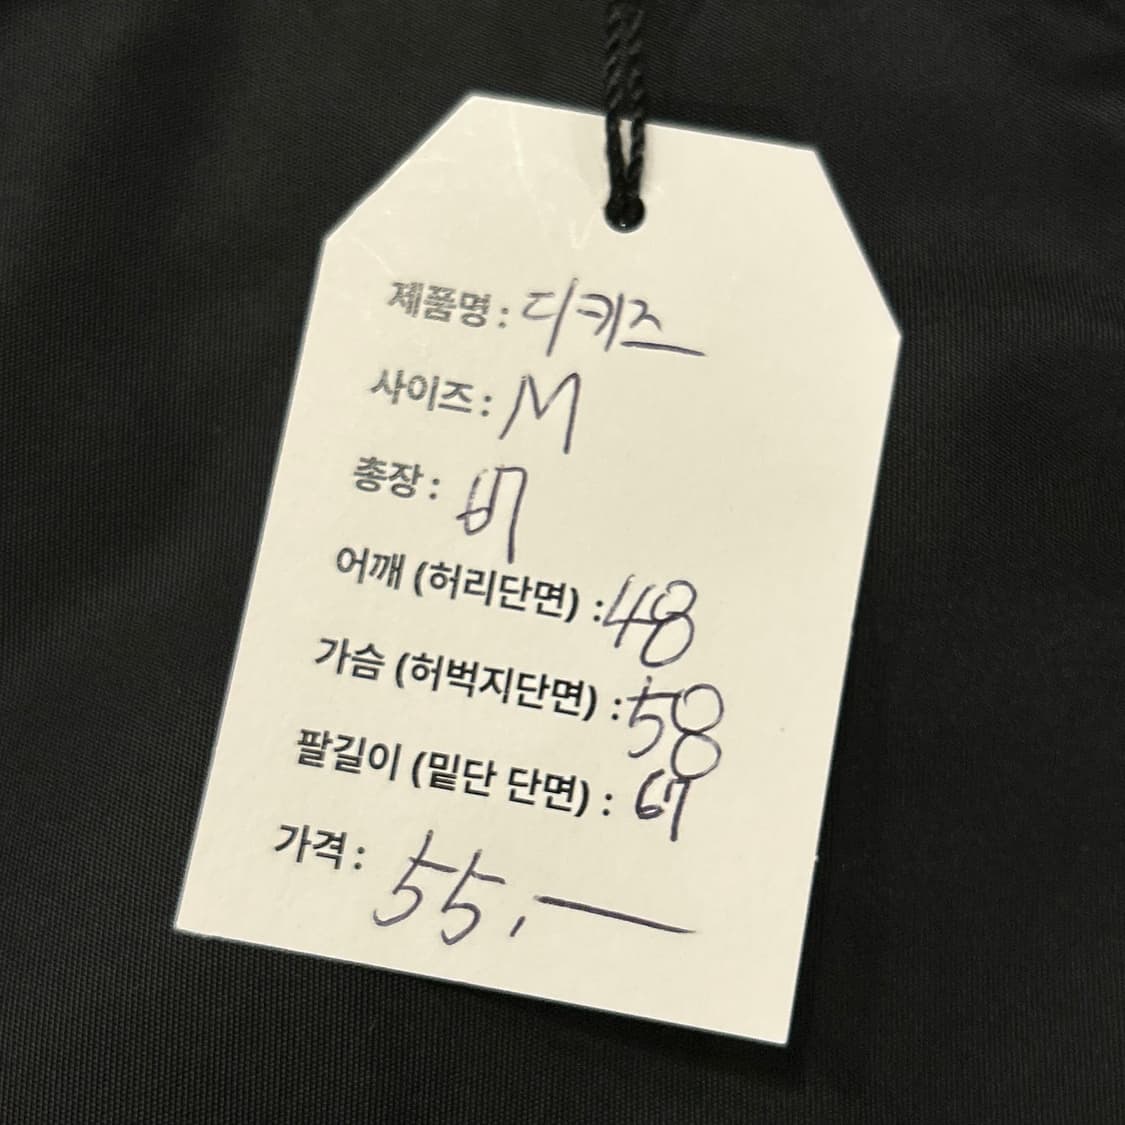 제품명 : 디키즈
사이즈 : M
총장 : 67
어깨 (허리단면) : 48
가슴 (허벅지단면) : 58
팔길이 (밑단 단면) : 67
가격 : 55,—